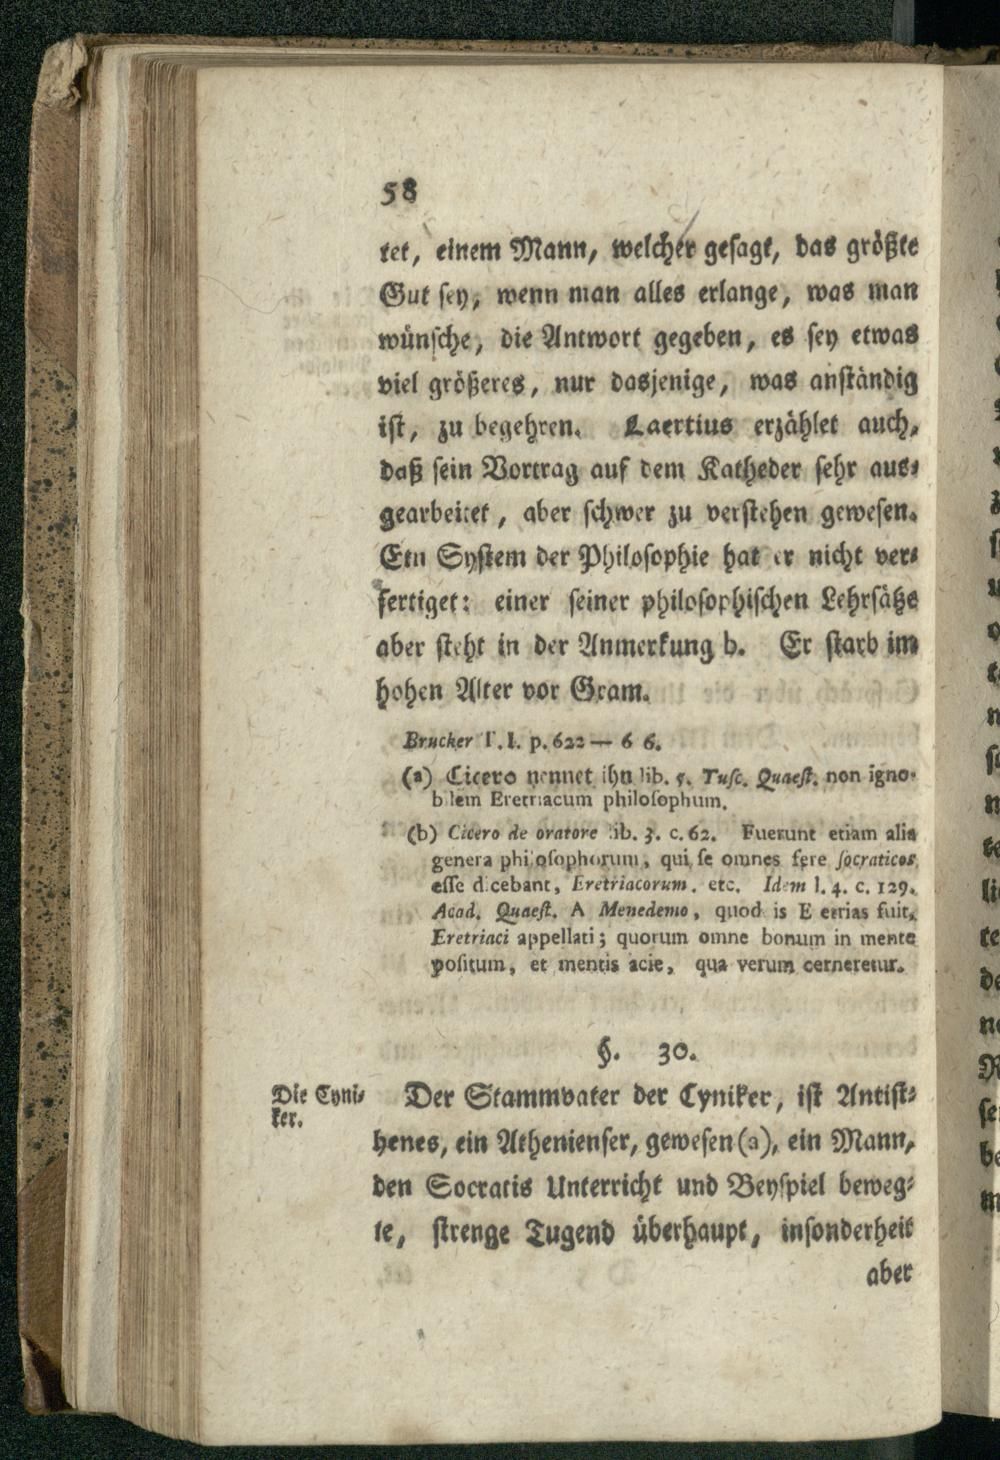 58
tet, einem Mann, welcher gesagt, das größte
Gut sey, wenn man alles erlange, was man
wünsche, die Antwort gegeben, es sey etwas
viel größeres, nur dasjenige, was anständig
ist, zu begehren. Laertius erzählet auch,
daß sein Vortrag auf dem Katheder sehr aus-
gearbeitet, aber schwer zu verstehen gewesen.
Ein System der Philosophie hat er nicht ver-
fertiget: einer seiner philosophischen Lehrsätze
aber steht in der Anmerkung b. Er starb im
hohen Alter vor Gram.
Brucker T. I. p. 622 — 6 6.
(a) Cicero nennet ihn lib. 5. Tusc. Quaest. non igno-
bilem Eretriacum philosophum.
(b) Cicero de oratore lib. 3. c. 62. Fuerunt etiam alia
genera philosophorum, qui se omnes fere socraticos
esse dicebant, Eretriacorum. etc. Idem l. 4. c. 129.
Acad. Quaest. A Menedemo, quod is E etrias fuit,
Eretriaci appellati; quorum omne bonum in mente
positum, et mentis acie, qua verum cerneretur.
§. 30.
Die Cyni-
ker.
Der Stammvater der Cyniker, ist Antist-
henes, ein Athenienser, gewesen (a), ein Mann,
den Socratis Unterricht und Beyspiel beweg-
te, strenge Tugend überhaupt, insonderheit
aber